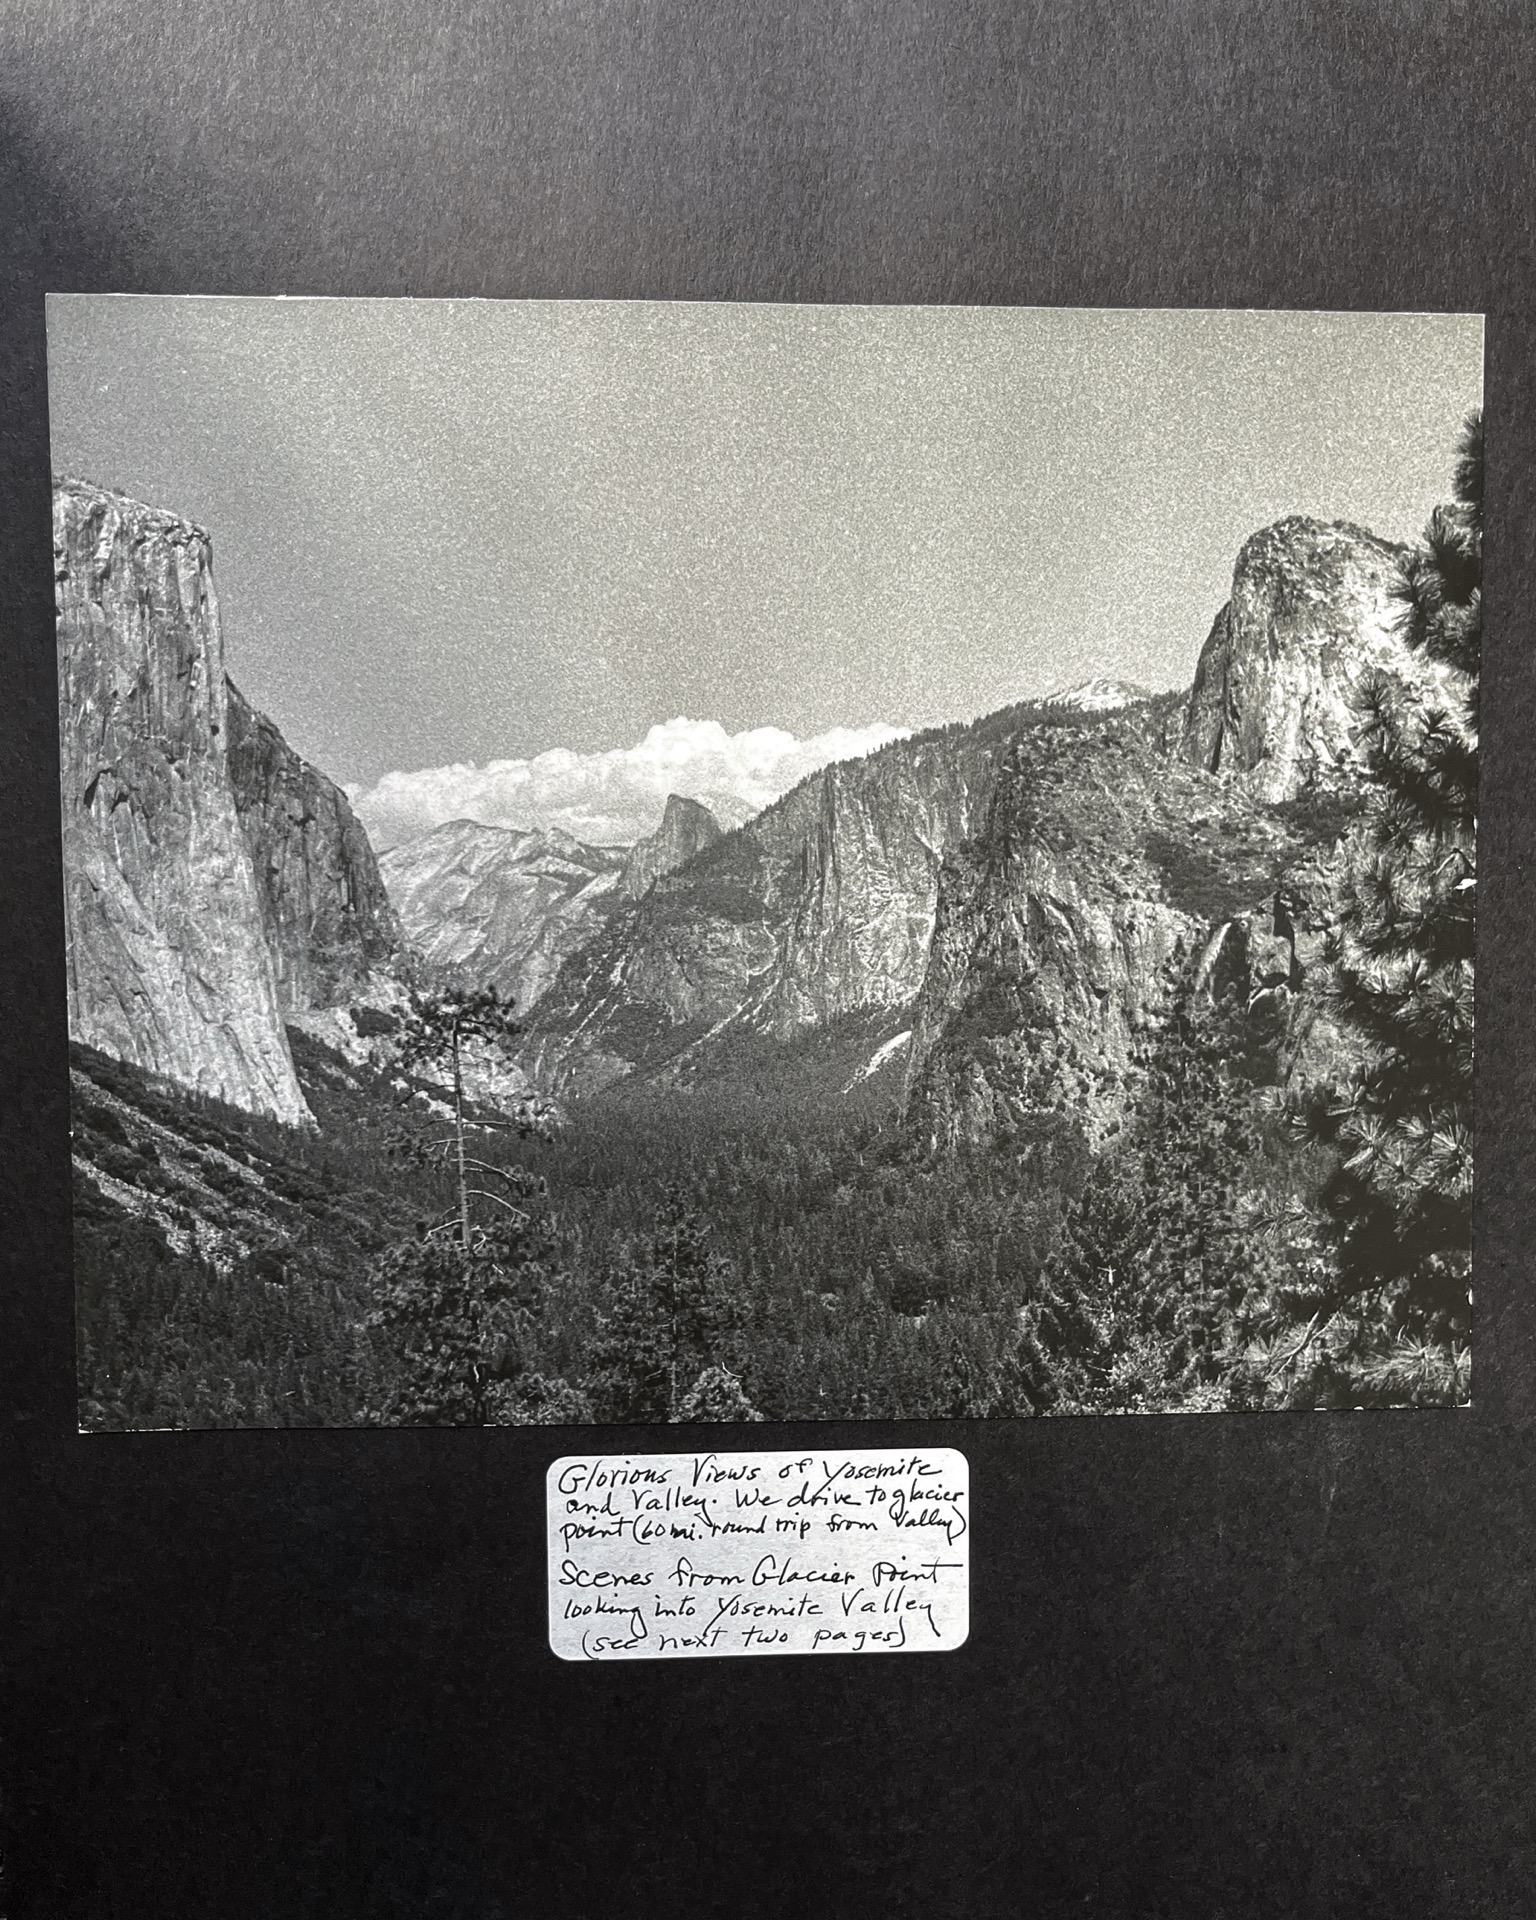 Glorious Views of Yosemite
and Valley. We drive to glacier
point (60 mi. round trip from Valley)
Scenes from Glacier Point
looking into Yosemite Valley
(see next two pages)